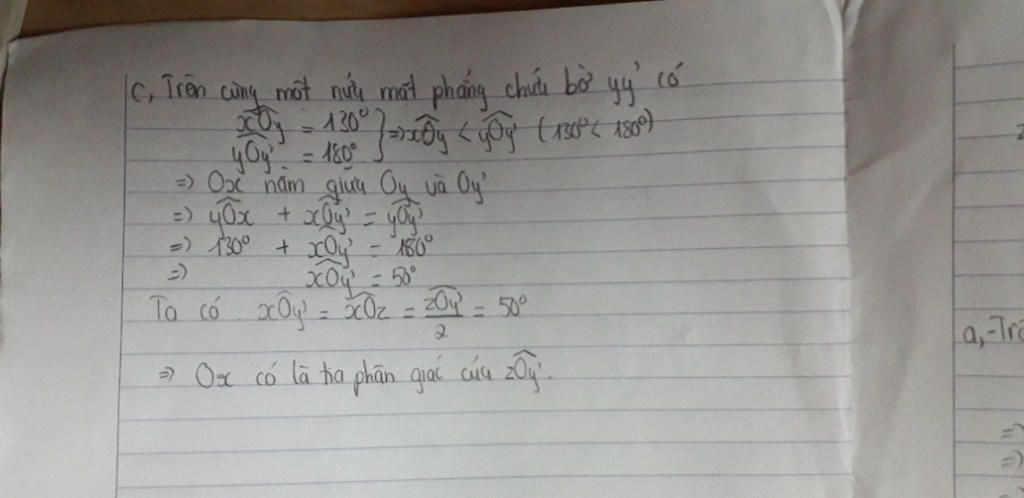 c, Trên cùng một nửa mặt phẳng chứa bờ yy' có
xÔy = 130°
yÔy' = 180° } => xÔy < yÔy' (130° < 180°)
=> Ox nằm giữa Oy và Oy'
=> yÔx + xÔy' = yÔy'
=> 130° + xÔy' = 180°
=> xÔy' = 50°
Ta có xÔy' = xÔz = zÔy'/2 = 50°
=> Ox có là tia phân giác của zÔy'.
a,-Trê
=>
=>